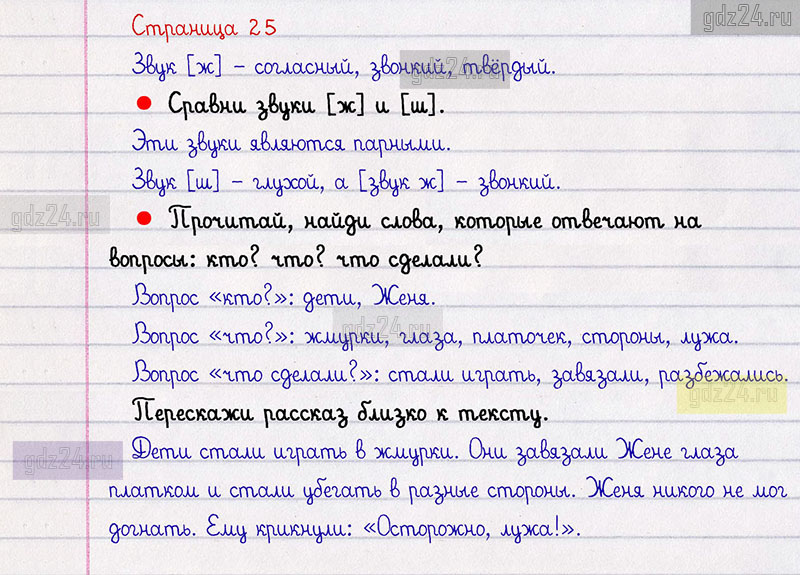 gdz24.ru
Страница 25
Звук [ж] – согласный, звонкий, твёрдый.
gdz24.ru
● Сравни звуки [ж] и [ш].
Эти звуки являются парными.
Звук [ш] – глухой, а [звук ж] – звонкий.
gdz24.ru
● Прочитай, найди слова, которые отвечают на
вопросы: кто? что? что сделали?
Вопрос «кто?»: дети, Женя.
gdz24.ru
Вопрос «что?»: жмурки, глаза, платочек, стороны, лужа.
Вопрос «что сделали?»: стали играть, завязали, разбежались.
gdz24.ru
Перескажи рассказ близко к тексту.
Дети стали играть в жмурки. Они завязали Жене глаза
gdz24.ru
платком и стали убегать в разные стороны. Женя никого не мог
догнать. Ему крикнули: «Осторожно, лужа!».